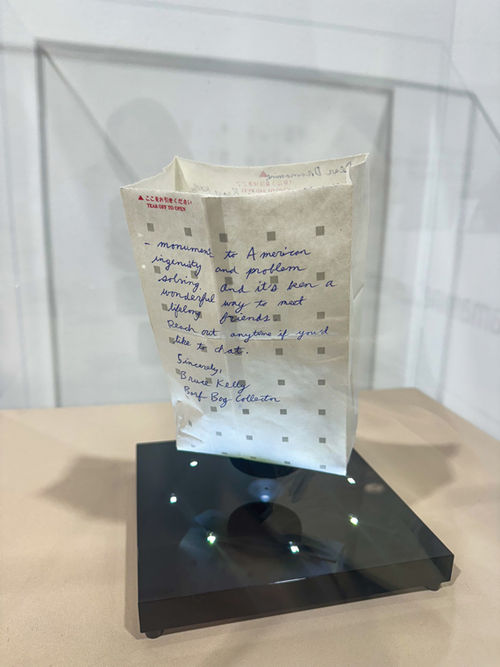 Dear
▲ ここをお引きください
TEAR OFF TO OPEN
- monument to American
ingenuity and problem
solving. and it's been a
wonderful way to meet
lifelong friends.
Reach out anytime if you'd
like to chat.
Sincerely,
Bruce Kelly
Barf Bag Collector